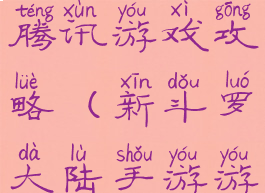 téng xùn yóu xì gōng
腾讯游戏攻
lüè xīn dǒu luó
略(新斗罗
dà lù shǒu yóu yóu
大陆手游游